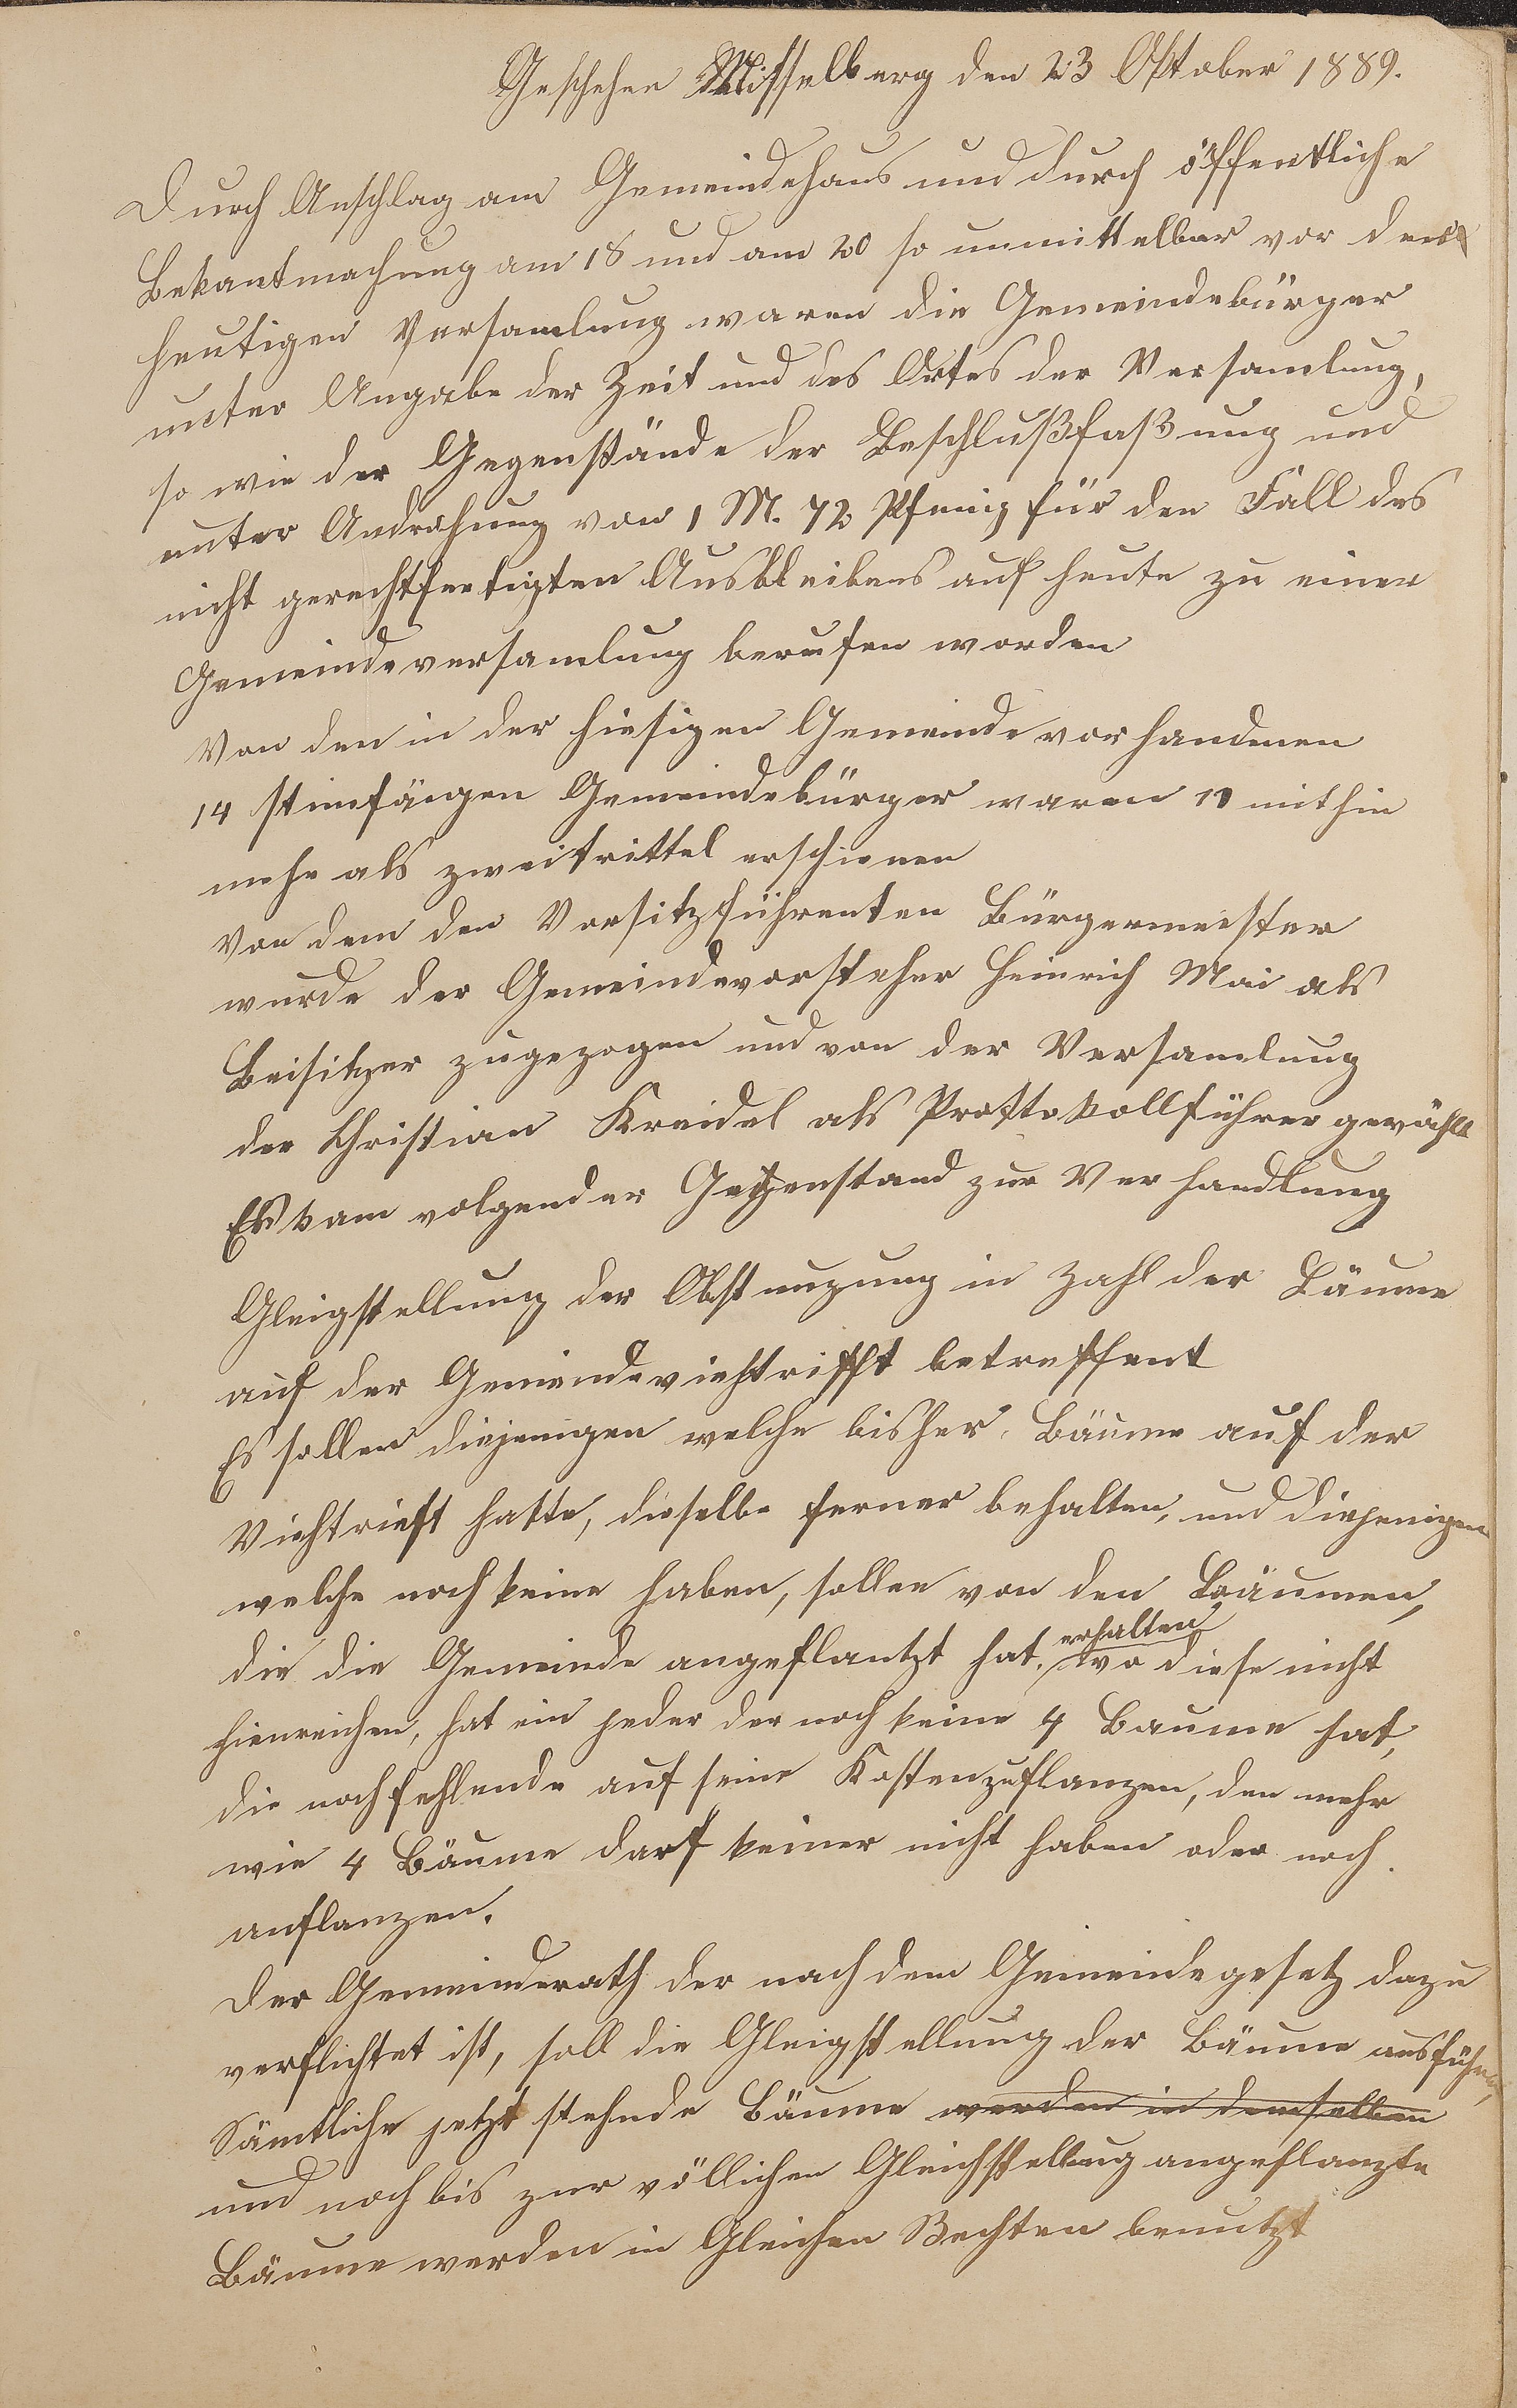 Geschehen Misselberg den 23 Oktober 1889.
Durch Anschlag am Gemeindehaus und durch öffentliche
Bekantmachung am 18 und am 20 so unmittelbar vor der
heutigen Versamlung waren die Gemeindebürger
unter Angabe der Zeit und des Ortes der Versamlung,
so wie der Gegenstände der Beschlußfaßung und
unter Androhung von 1 M. 72 Pfenig für den Fall des
nicht gerechtfertigten Ausbleibens auf heute zu einer
Gemeindeversamlung berufen worden
Von den in der hiesigen Gemeinde vorhandenen
14 stimfäigen Gemeindebürger waren mithin
mehr als zweitrittel erschienen
Von dem den Vorsitzführenten Bürgermeister
wurde der Gemeindevorsteher Heinrich Mai als
Beisitzer zugezogen und von der Versamlung
der Christian Kreidel als Prottokollführer gewählt
Es kam volgender Gegenstand zur Verhandlung
Gleigstellung der Obstnuzung in Zahl der Bäume
auf der Gemeindeviehtrifft betreffent
Es sollen diejenigen welche bisher Bäume auf der
Viehtrieft hatte, dieselbe ferner behalten, und diejenigen
welche noch keine haben, sollen von den Bäumen,
die die Gemeinde angeflantzt hat, erhalten wo diese nicht
hienreichen, hat ein jeder der noch keine 4 Baume hat,
die noch fehlende auf seine Kosten zuflanzen, den mehr
wie 4 Bäume darf keiner nicht haben oder noch
anflanzen.
Der Gemeinderath der nach dem Gemeindegesetz dazu
verflichtet ist, soll die Gleigstellung der Bäume ausführen,
Sämtliche jetzt stehnde Bäume werden in demselben
und noch bis zur völlichen Gleichstellung angeflanzte
Bäume werden in Gleichen Rechten benutzt